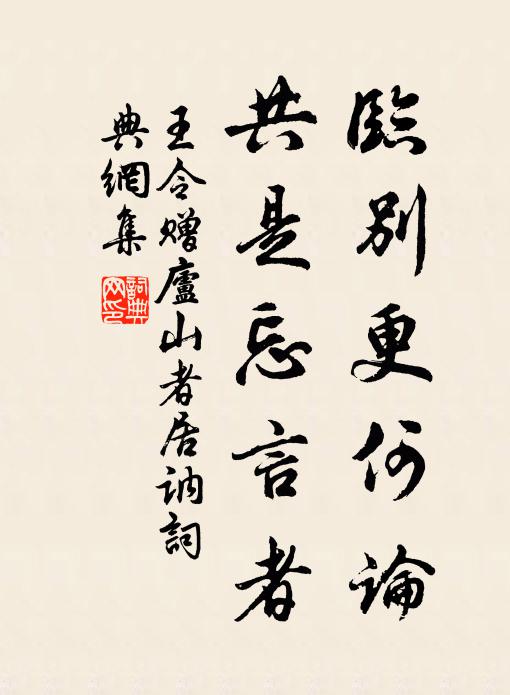 臨別更何論
共是忘言者
王令贈廬山者居訥詞
典網集
詞典
网印